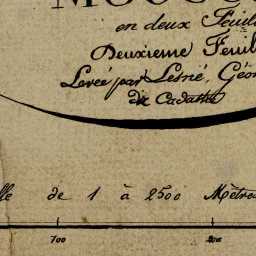 en deux Feuil
Deuxieme Feuil
Levée par Lesné, Géo
du Cadastre
lle de 1 à 2500 Mètres
100 200